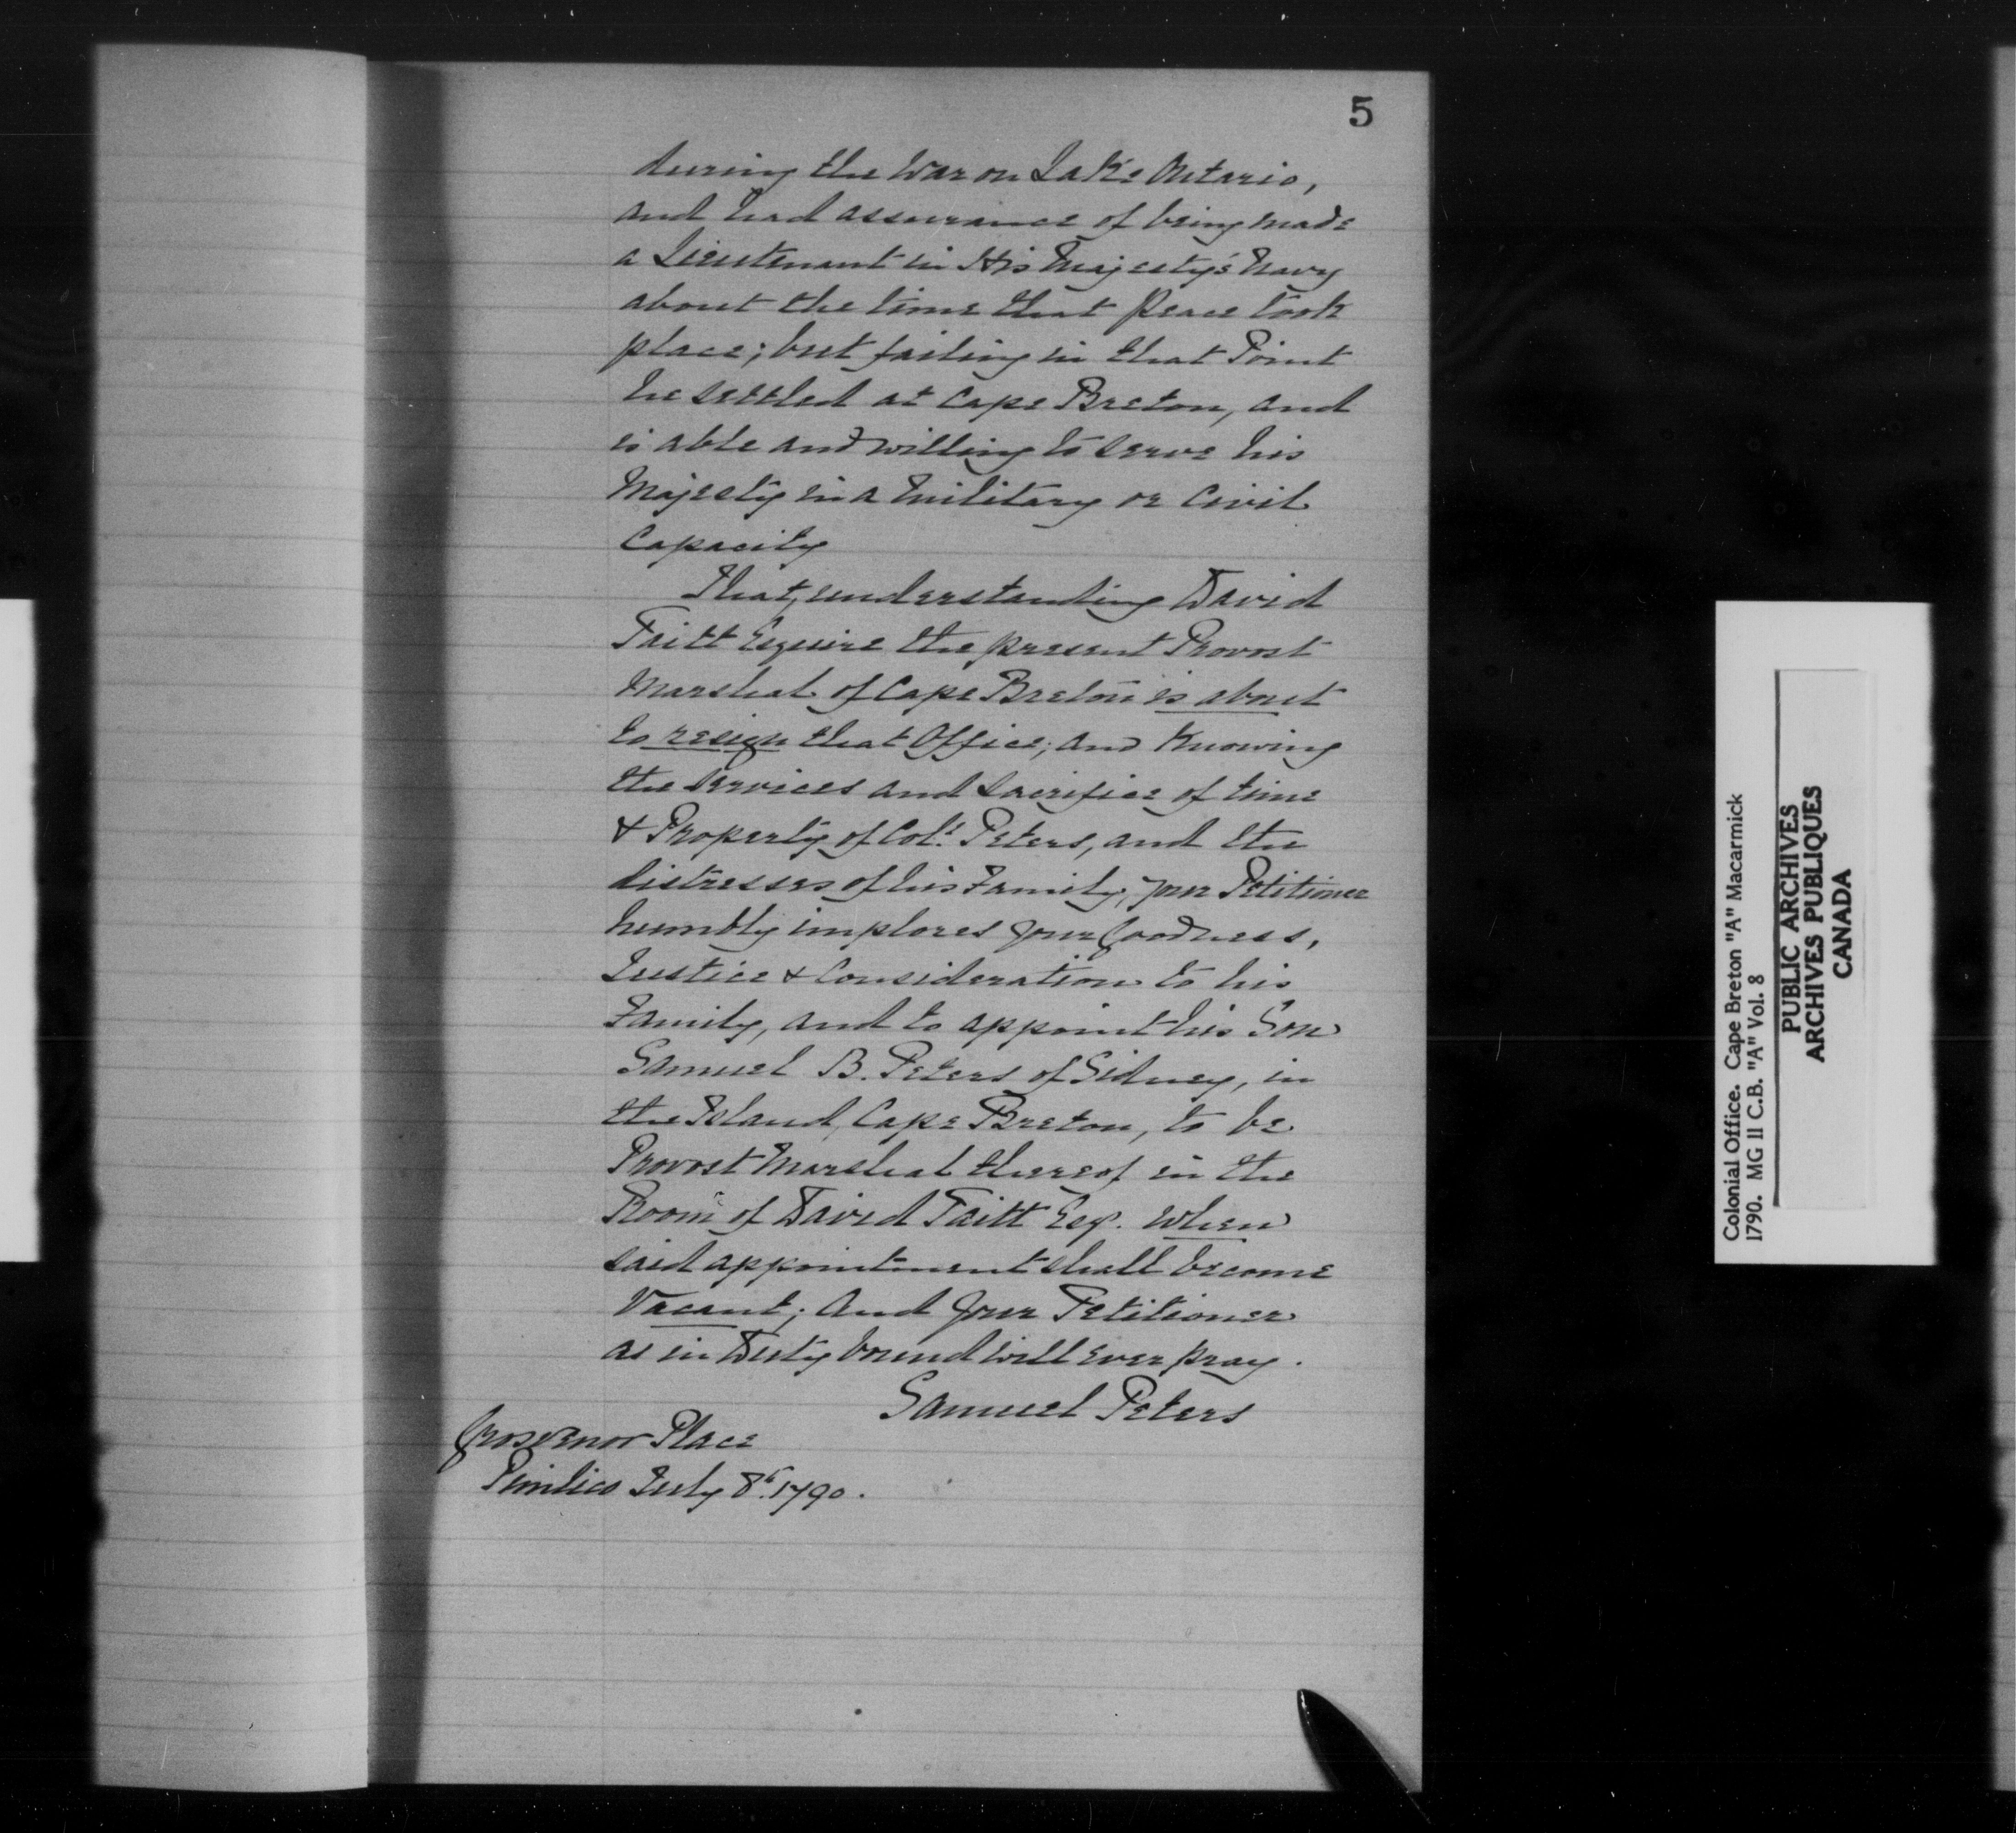 5
during the War on Lake Ontario,
and had assurance of being made
a Lieutenant in His Majesty's Navy
about the time that Peace took
place; but failing in that Point
he settled at Cape Breton, and
is able and willing to serve his
Majesty in a Military or Civil
Capacity
That, understanding David
Taitt Esquire the present Provost
Marshal of Cape Breton is about
to resign that Office; and Knowing
the Services and Sacrifice of time
& Property of Col! Peters, and the
distresses of his Family, your Petitioner
humbly implores your Goodness,
Justice & Consideration to his
Family, and to appoint his Son
Samuel B. Peters of Sidney, in
the Island, Cape Breton, to be
Provost Marshal thereof in the
Room of David Taitt Esq. When
said appointment shall become
Vacant; And your Petitioner
as in Duty bound will ever pray.
Samuel Peters
Grosvenor Place
Pimlico July 8th 1790.
Colonial Office. Cape Breton "A" Macarmick
1790. MG 11 C.B. "A" Vol. 8
PUBLIC ARCHIVES
ARCHIVES PUBLIQUES
CANADA